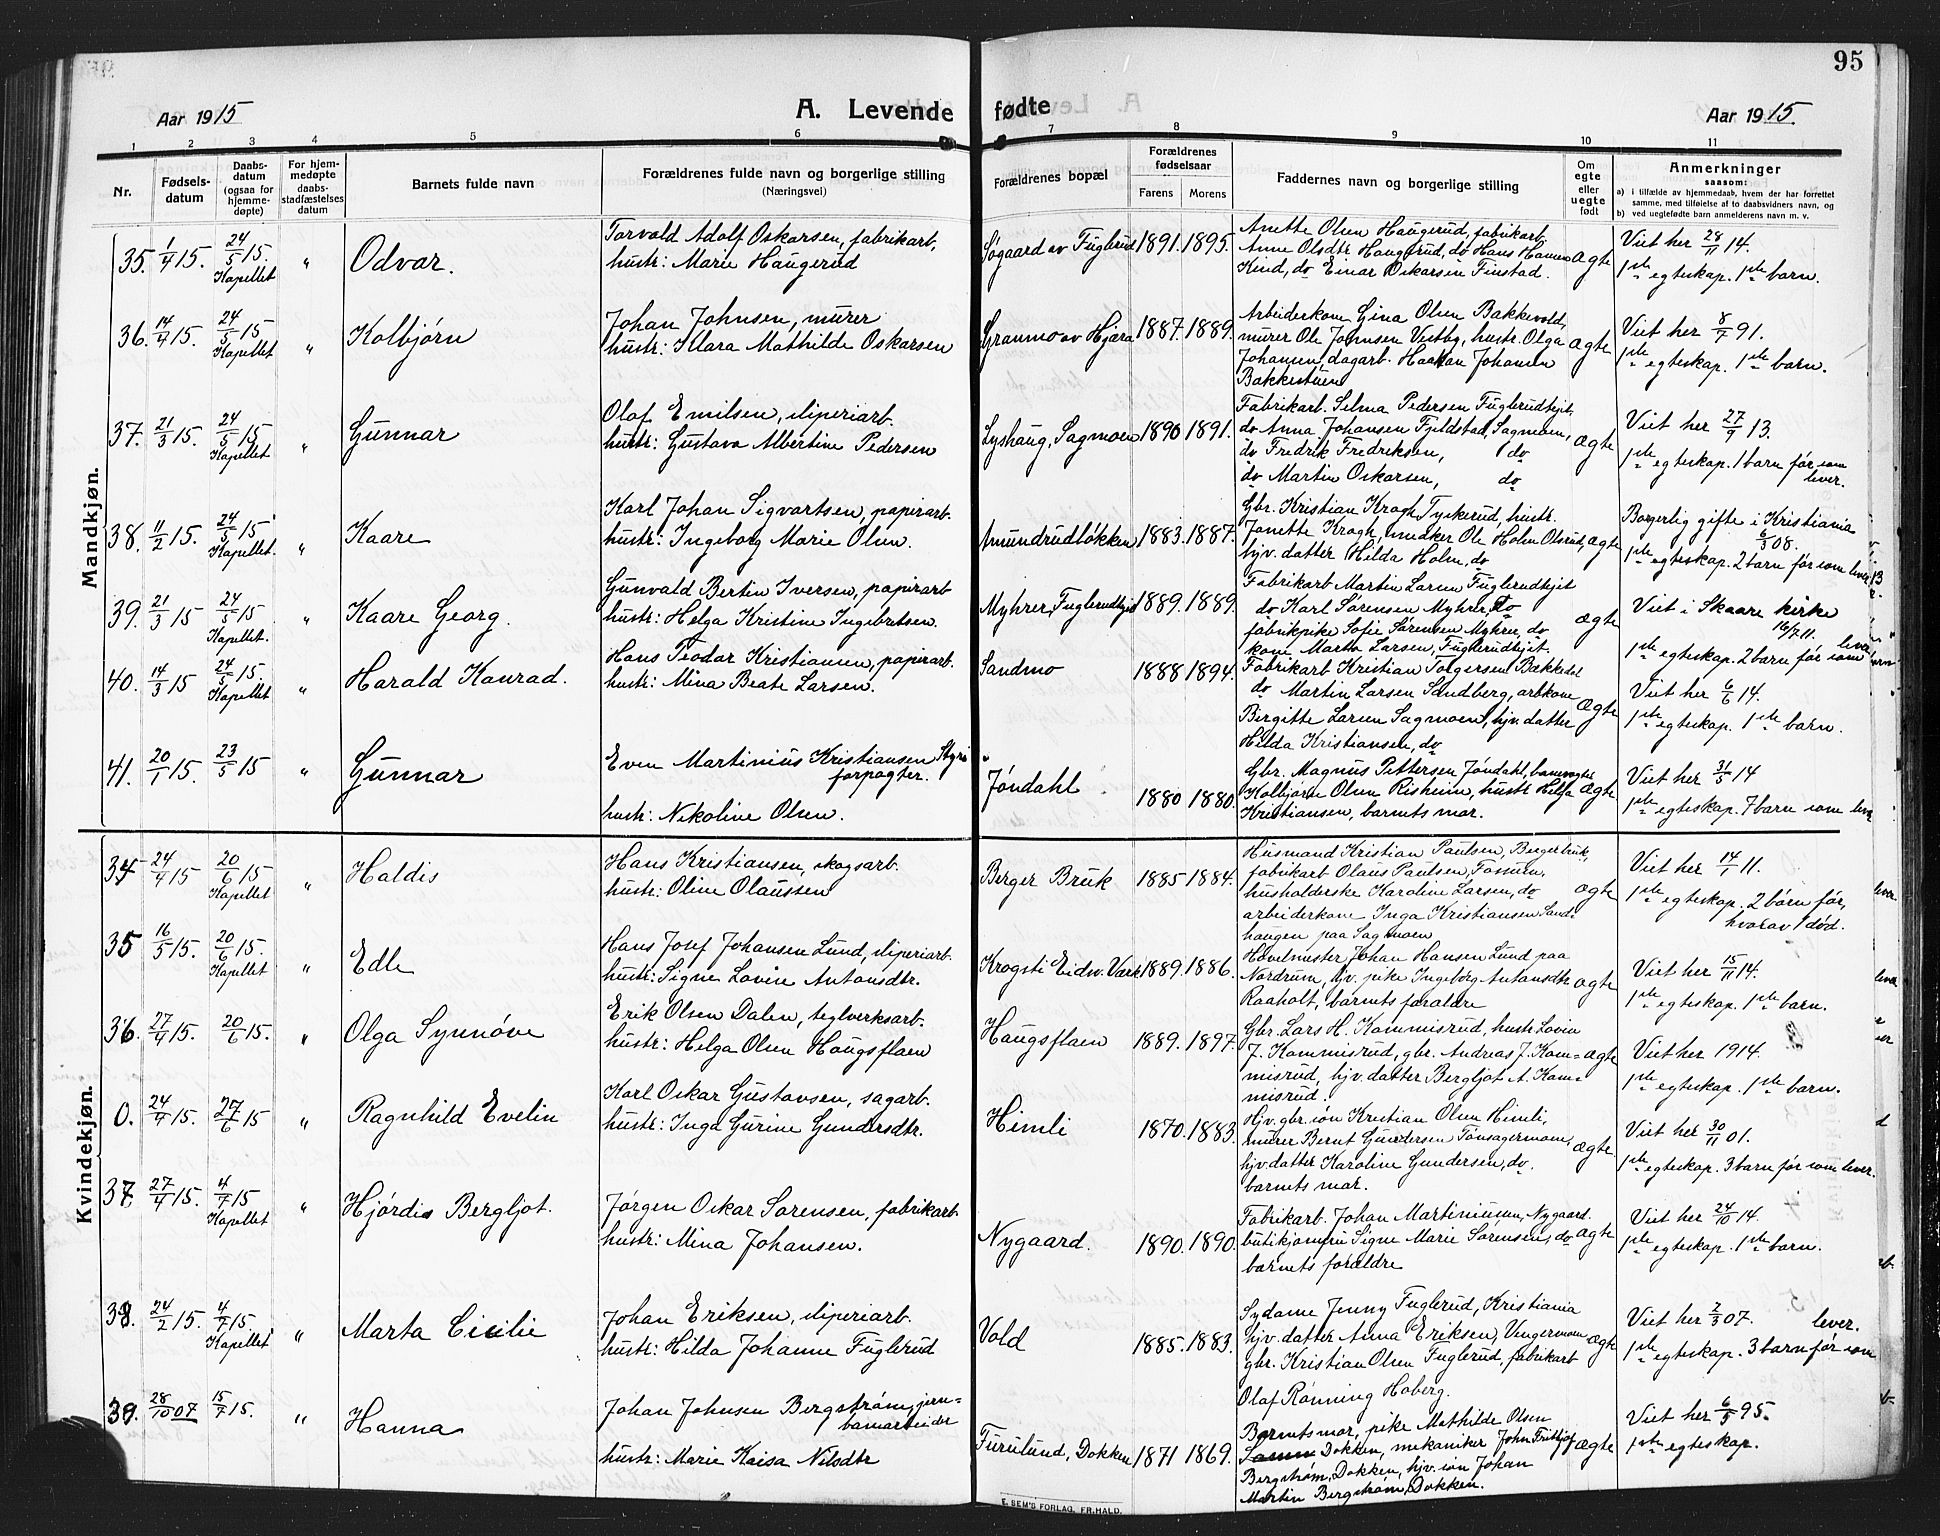 95
Aar 1915 A. Levende fødte Aar 1915.
1 2 3 4 5 6 7 8 9 10 11
Nr.
Fødsels-
datum
Daabs-
datum
(ogsaa for
hjemme-
døpte)
For hjem-
medøpte
daabs-
stadfæstelses
datum
Barnets fulde navn
Forældrenes fulde navn og borgerlige stilling
(Næringsvei)
Forældrenes bopæl
Forældrenes
fødselsaar
Farens Morens
Faddernes navn og borgerlige stilling
Om
egte
eller
uegte
født
Anmerkninger
saasom:
a) i tilfælde av hjemmedaab, hvem der har forrettet
samme, med tilføielse af to daabsvidners navn, og
b) ved uegtefødte barn anmelderens navn m. v.
Mandkjøn.
35. 1/4 15. 24/5 15. Kapellet " Odvar.
Torvald Adolf Oskarsen, fabrikarb,
hustr: Marie Haugerud
Søgaard av Fuglerud 1891. 1895.
Anette Olsen Haugerud, fabrikarb,
Anne Olsdtr. Haugerud, do Hans Hansen
Kind, do Einar Oskarsen Finstad.
ægte
Viet her 28/11 14.
1ste egteskap. 1ste barn.
36. 14/4 15. 24/5 15 Kapellet " Kolbjørn
Johan Johnsen, murer
hustr: Klara Mathilde Oskarsen
Granmo av Hjæra 1887. 1889.
Arbeiderkone Gina Olsen Bakkevold,
murer Ole Johnsen Vestby, hustr. Olga
Johansen, dagarb. Haakon Johansen
Bakkestuen
ægte
Viet her 8/7 91.
1ste egteskap. 1ste barn.
37. 21/3 15. 24/5 15 Kapellet " Gunnar
Olaf Emilsen, sliperiarb.
hustr: Gustava Albertine Pedersen
Lyshaug, Sagmoen 1890 1891.
Fabrikarb. Selma Pedersen Fuglerudhjet,
do Anna Johansen Fjeldstad, Sagmoen,
do Fredrik Fredriksen, do
do Martin Oskarsen, do
ægte
Viet her 27/9 13.
1ste egteskap. 1 barn før som
lever.
38. 11/2 15. 24/5 15 Kapellet. " Kaare
Karl Johan Sigvartsen, papirarb.
hustr: Ingeborg Marie Olsen.
Amundrudløkken 1883. 1887.
Gbr. Kristian Kragh Tyskerud, hustr.
Janette Kragh, snedker Ole Holm Olsrud,
hjv. datter Hilda Holm, do
ægte
Borgerlig gifte i Kristiania
6/3 08.
1ste egteskap. 2 barn før som lever.
39. 21/3 15 24/5 15 Kapellet. " Kaare Georg.
Gunvald Bertin Iversen, papirarb
hustr: Helga Kristine Ingebretsen.
Myhrer, Fuglerudhjet 1889. 1889.
Fabrikarb Martin Larsen Fuglerudhjet
do Karl Sørensen Myhrer, do
fabrikpike Sofie Sørensen Myhrer, do
kone Marta Larsen, Fuglerudhjet.
ægte
Viet i Skaare kirke
16/7 11.
1ste egteskap. 2 barn før som lever
40. 14/3 15 24/5 15. Kapellet " Harald Konrad.
Hans Teodor Kristiansen, papirarb.
hustr: Mina Beate Larsen.
Sandmo 1888 1894.
Fabrikarb Kristian Tolgersen Bakkedel
do Martin Larsen Sandberg, arbkone
Birgitte Larsen Sagmoen, hjv. datter
Hilda Kristiansen, do
ægte
Viet her 6/6 14.
1ste egteskap. 1ste barn.
41. 20/1 15. 23/5 15 " Gunnar
Even Martinius Kristiansen Styri
forpagter.
hustr: Nikoline Olsen.
Jøndahl 1880 1880.
Gbr. Magnus Pettersen Jøndahl, banevogter
Kolbjørn Olsen Risheim, hustr Helga
Kristiansen, barnets mor.
ægte
Viet her 31/5 14
1ste egteskap. 7 barn som lever
Kvindekjøn.
34 24/4 15 20/6 15 Kapellet " Haldis
Hans Kristiansen, skogsarb.
hustr: Oline Olaussen
Berger Bruk 1885 1884.
Husmand Kristian Paulsen, Bergerbruk,
fabrikarb Olaus Paulsen, Fossum,
husholderske Karoline Larsen, do
arbeiderkone Inga Kristiansen Sand-
haugen paa Sagmoen
ægte
Viet her 14/1 11.
1ste egteskap. 2 barn før,
hvorav 1 død.
35 16/5 15. 20/6 15. Kapellet " Edle
Hans Josef Johansen Lund, sliperiarb.
hustr: Signe Lovise Antonsdtr.
Krogsti Eidsv. Værk 1889. 1886.
Høvelmester Johan Hansen Lund paa
Nordrum, hjv. pike Ingeborg Antonsdtr
Raaholt, barnets forældre
ægte
Viet her 15/11 14.
1ste egteskap. 1ste barn.
36. 27/4 15. 20/6 15. " Olga Synnøve
Erik Olsen Dalen, teglverksarb.
hustr: Helga Olsen Haugsflaen
Haugsflaen 1889. 1897.
Gbr. Lars H. Kommisrud, hustr Lovisa
J. Kommisrud, gbr. Andreas J. Kom-
misrud, hjv. datter Bergljot A. Kom-
misrud.
ægte
Viet her 1914.
1ste egteskap. 1ste barn.
0. 24/4 15. 27/6 15 " Ragnhild Evelin
Karl Oskar Gustavsen, sagarb.
hustr: Inga Gurine Gundersdtr.
Himli 1870. 1883.
Hjv. gbr. søn Kristian Olsen Himli,
murer Bernt Gundersen Tønsagermoen,
hjv. datter Karoline Gundersen, do.
barnets mor.
ægte
Viet her 30/11 01.
1ste egteskap. 3 barn før som lever.
37 27/4 15. 4/7 15 Kapellet " Hjørdis Bergljot.
Jørgen Oskar Sørensen, fabrikarb.
hustr: Mina Johansen.
Nygaard. 1890. 1890.
Fabrikarb. Johan Martiniusen, Nygaard.
butikjomfru Signe Marie Sørensen, do
barnets forældre
ægte
Viet her 24/10 14.
1ste egteskap. 1ste barn.
38. 24/2 15. 4/7 15 Kapellet " Marta Cicilie
Johan Eriksen, sliperiarb.
hustr: Hilda Johanne Fuglerud
Vold 1885. 1883.
Sydame Jenny Fuglerud, Kristiania
hjv. datter Anna Eriksen, Vingermoen
gbr. Kristian Olsen Fuglerud, fabrikarb
Olaf Rønning Hoberg.
ægte
Viet her 2/3 07. lever.
1ste egteskap. 3 barn før som
39. 28/10 07 15/7 15. " Hanna
Johan Johnsen Bergstrøm, jern-
banearbeider
hustr: Marie Kaisa Nilsdtr
Furulund, Dokken 1871 1869.
Barnets mor, pike Mathilde Olsen
Dokken, mekaniker John Fritjof
Bergstrøm, Dokken, hjv. søn Johan
Martin Bergstrøm, Dokken.
ægte
Viet her 6/5 95.
1ste egteskap.
E. SEM'S FORLAG, FR.HALD.